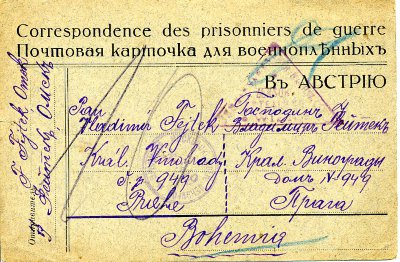 Correspondence des prisonniers de guerre
Почтовая карточка для военноплѣнныхъ
Въ АВСТРІЮ
Pan
Vladimír Fejtek
Král. Vinohrady
Čp 949
Bohemia
Господинъ
Владимиръ Фейтек
Крал. Винограды
домъ № 949
Прага
F. Fejtek Omsk
Фейтекъ, Омскъ